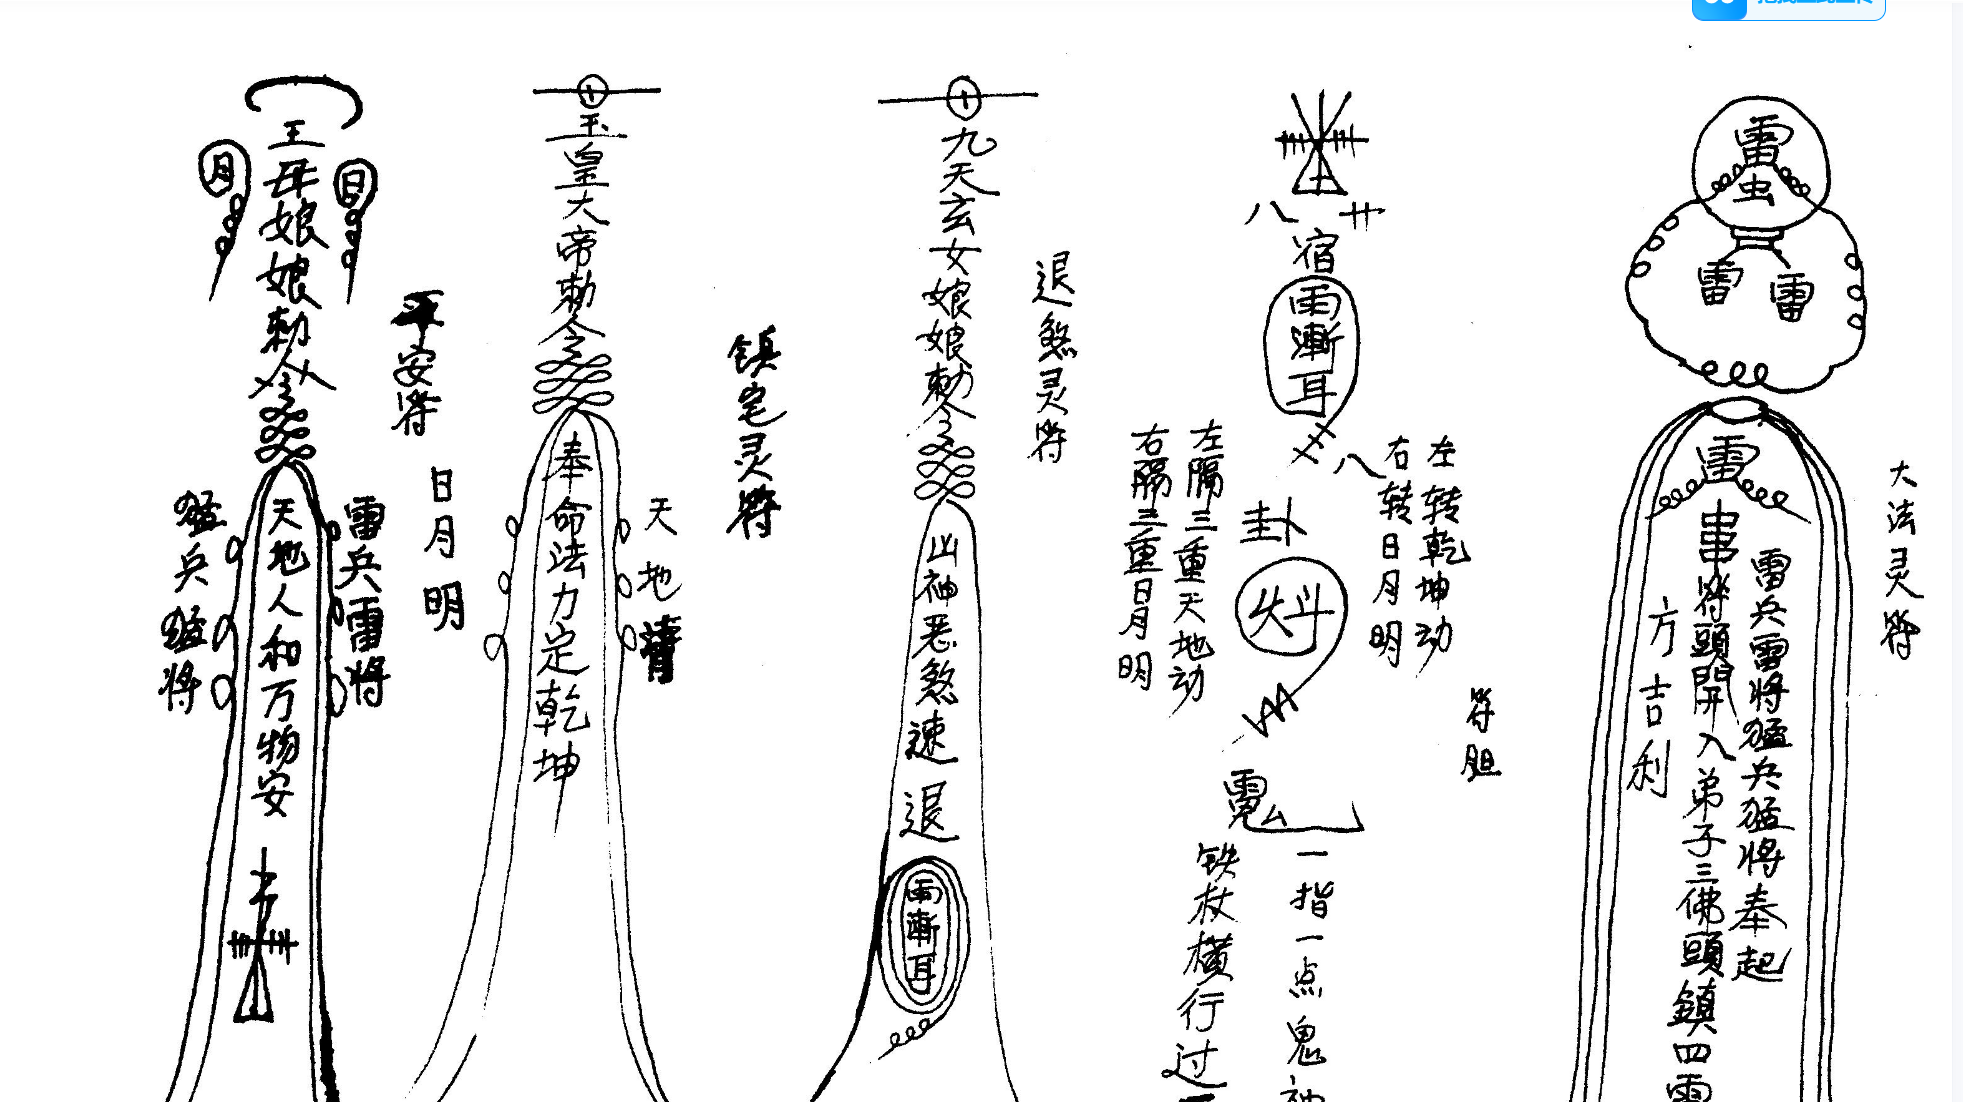 王母娘娘勅令
月
日
平安符
猛兵猛将
天地人和万物安
雷兵雷将
日月明
玉皇大帝勅令
奉命法力定乾坤
天地清
镇宅灵符
九天玄女娘娘勅令
凶神恶煞速退
雨漸耳
退煞灵符
八廿
宿
雨漸耳
八
卦
右隔三重日月明
左隔三重天地动
右转日月明
左转乾坤动
符胆
铁杖横行过
一指一点鬼神
雷
虫
雷雷
雷
方吉利
符頭開入弟子三佛頭鎮四
雷兵雷将猛兵猛将奉起
大法灵符